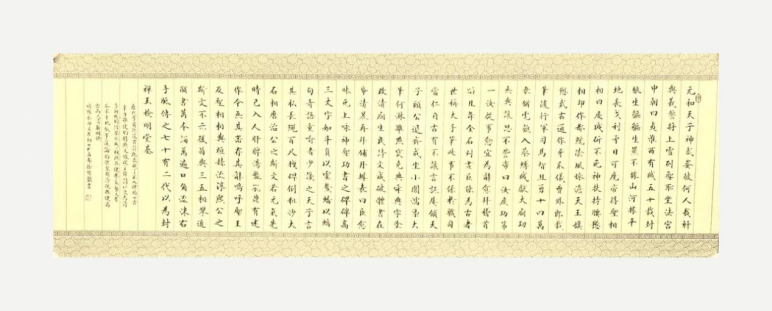 元和天子神武姿彼何人哉軒
與羲誓將上雪列聖恥坐法宮
中朝四夷淮西有賊五十載封
狼生貙貙生羆不據山河據平
地長戈利矛日可麾帝得聖相
相曰度賊斫不死神扶持腰懸
相印作都統陰風慘澹天王旗
愬武古通作牙爪儀曹外郎載
筆隨行軍司馬智且勇十四萬
眾猶虎貔入蔡縛賊獻太廟功
無與讓恩不訾帝曰汝度功第
一汝從事愈宜為辭愈拜稽首
蹈且舞金石刻畫臣能為古者
世稱大手筆此事不係於職司
當仁自古有不讓言訖屢頷天
子頤公退齋戒坐小閣濡染大
筆何淋漓點竄堯典舜典字塗
改清廟生民詩文成破體書在
紙清晨再拜鋪丹墀表曰臣愈
昧死上詠神聖功書之碑碑高
三丈字如斗負以靈鰲蟠以螭
句奇語重喻者少讒之天子言
其私長繩百尺拽碑倒粗沙大
石相磨治公之斯文若元氣先
時已入人肝脾湯盤孔鼎有述
作今無其器存其辭嗚呼聖王
及聖相相與烜赫流淳熙公之
斯文不示後曷與三五相攀追
願書萬本誦萬遍口角流沫右
手胝傳之七十有二代以為封
禪玉檢明堂基